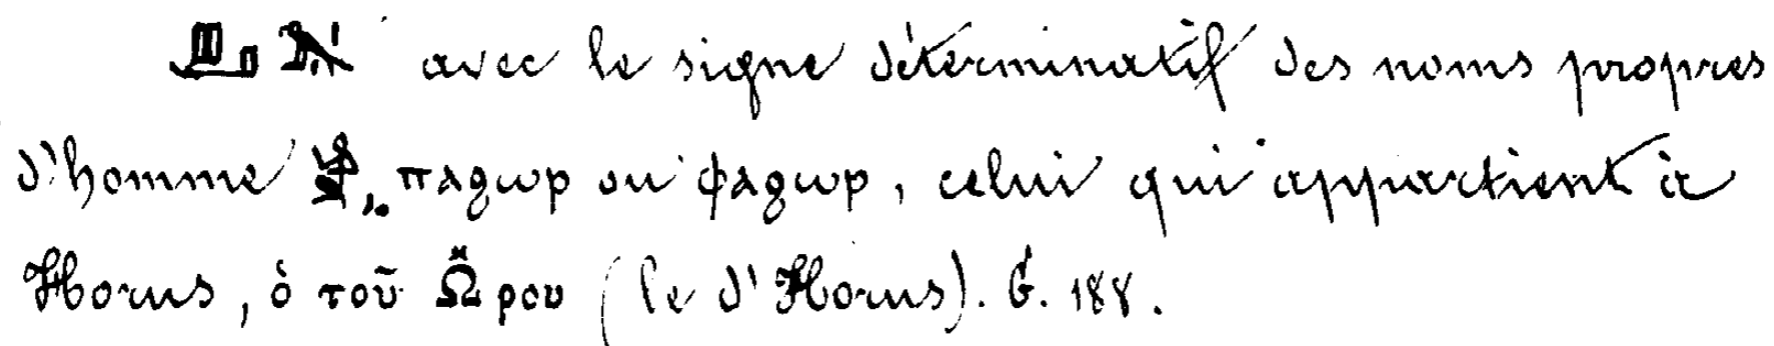 avec le signe déterminatif des noms propres
d'homme , ⲡⲁϩⲱⲣ ou ⲫⲁϩⲱⲣ, celui qui appartient à
Horus, ὁ τοῦ Ὥρου (le d'Horus). G. 188.